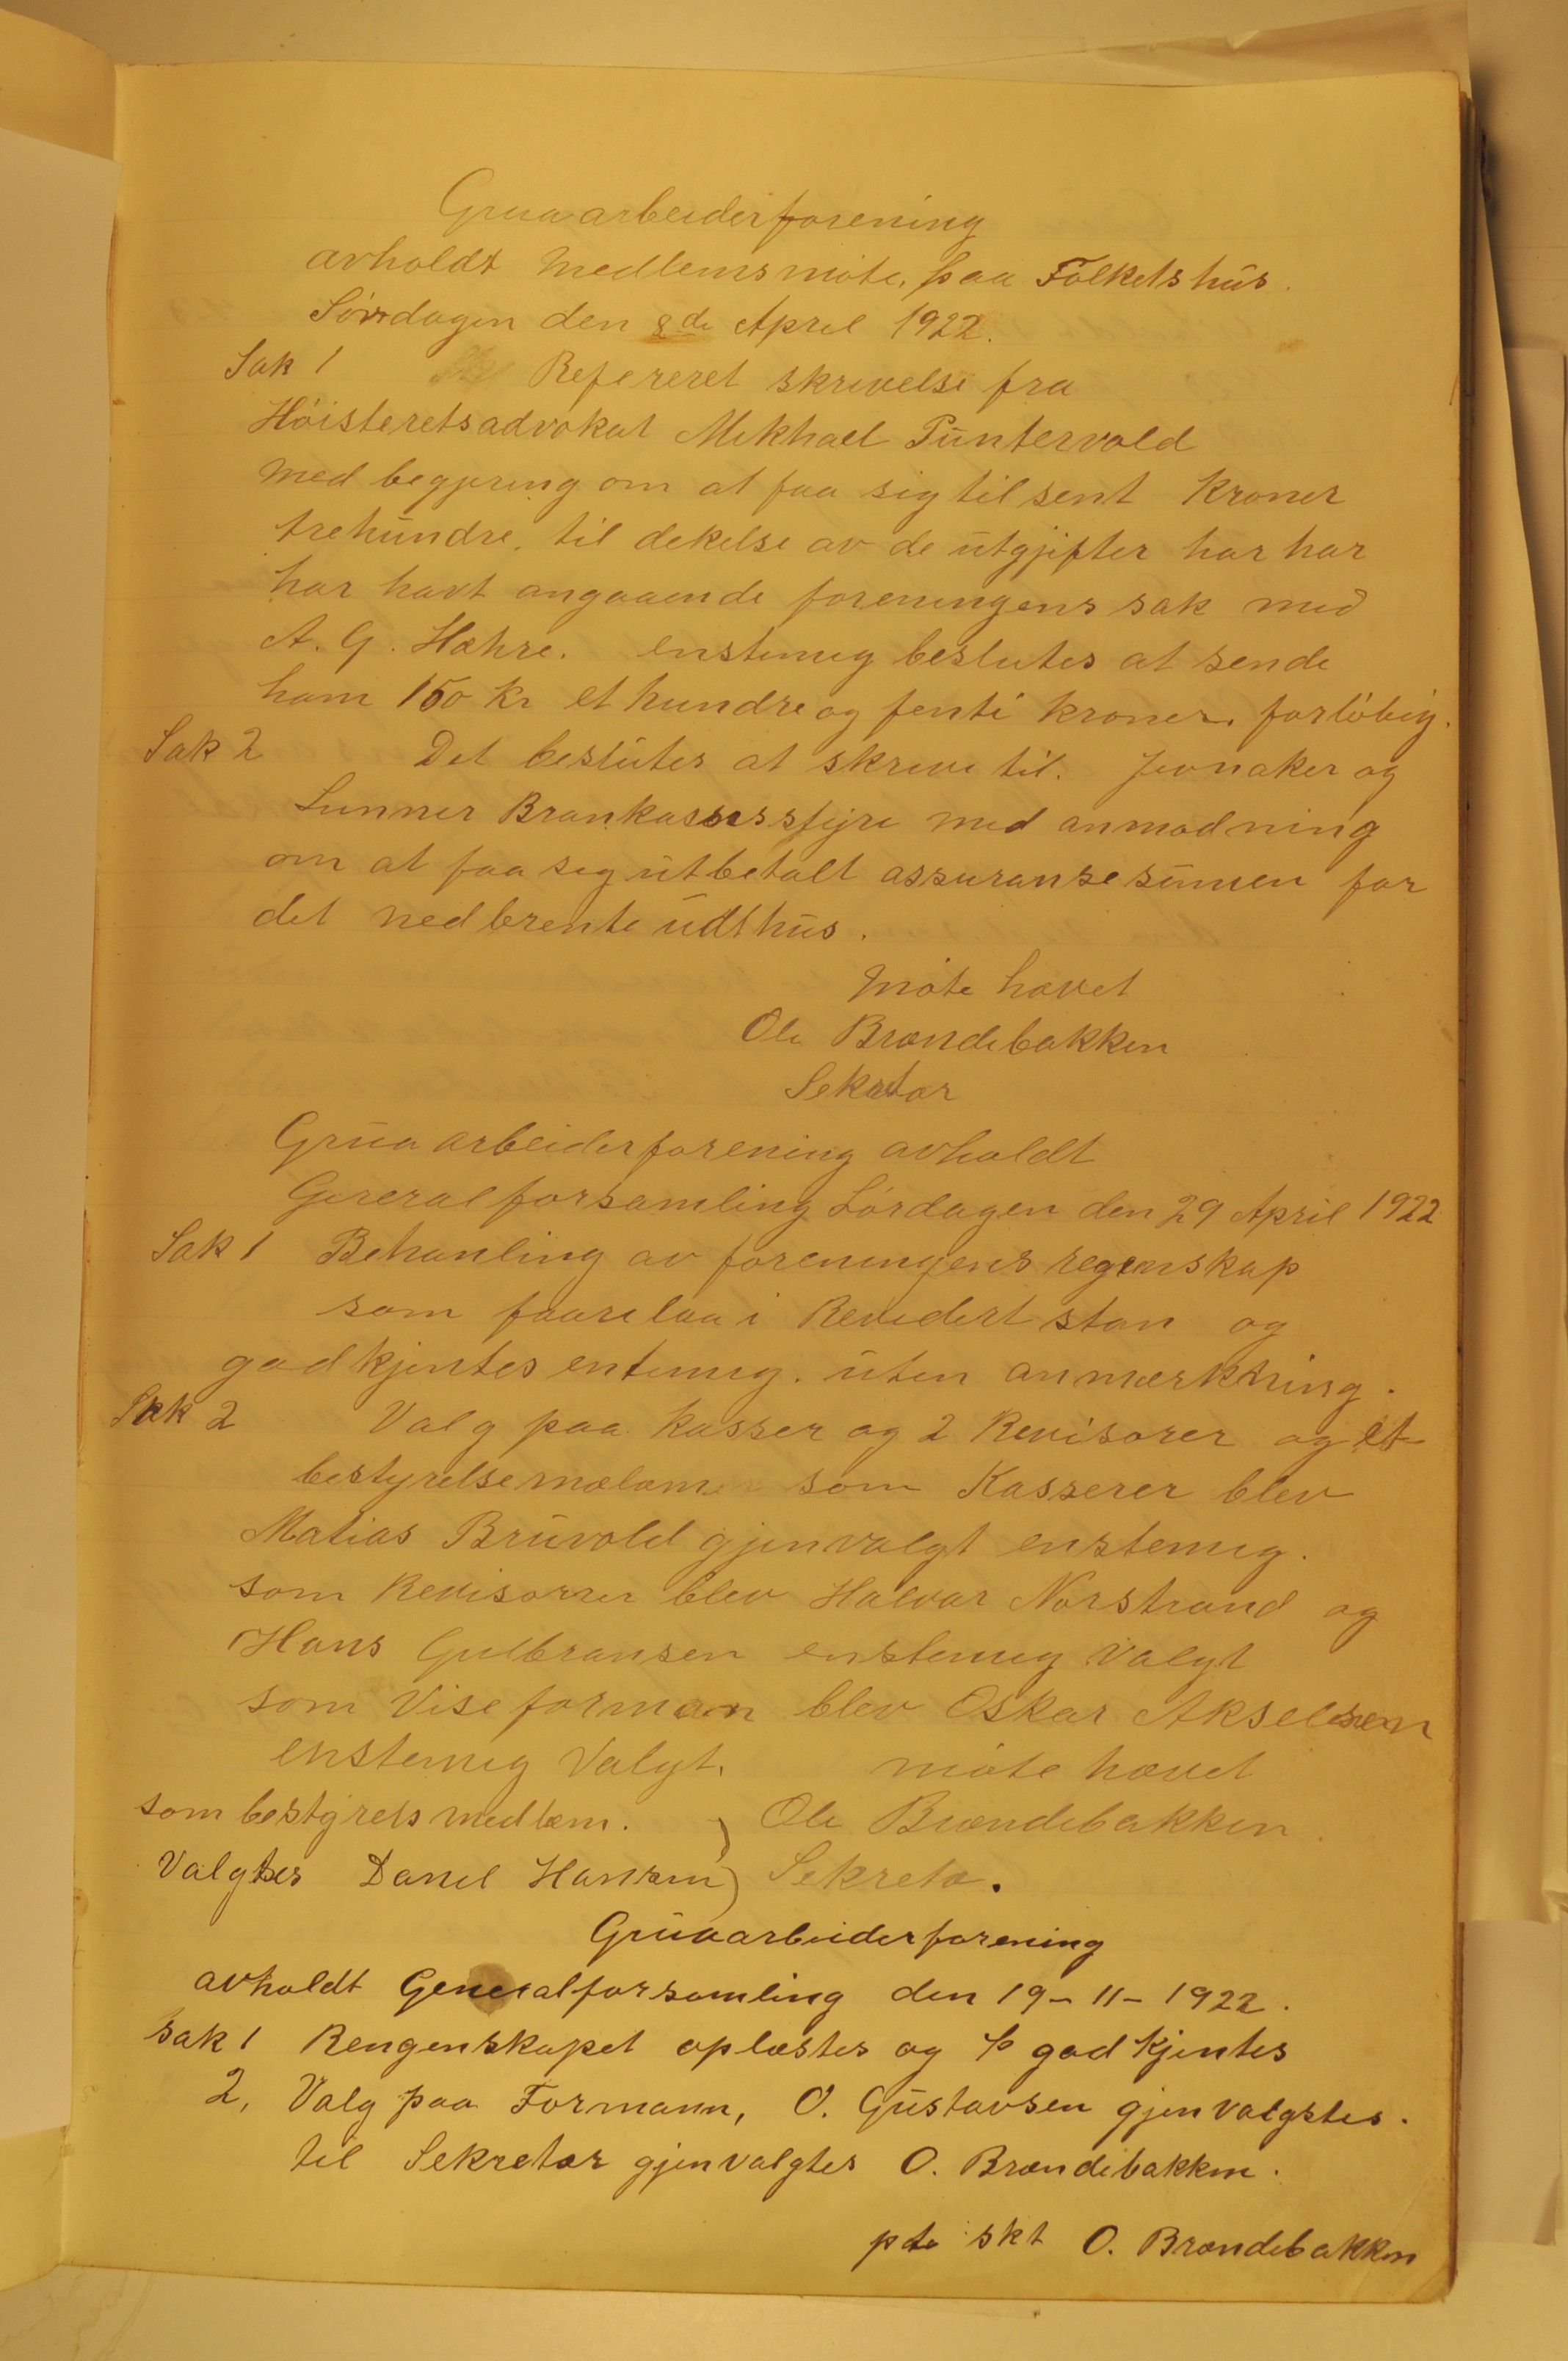 Gruaarbeiderforening
avholdt medlemsmøte, paa Folketshus.
Lørdagen den 8de April 1922.
Sak 1 Refereret skrivelse fra
Høisteretsadvokat Mikhael Puntervold
med begjæring om at faa sig tilsent kroner
trehundre, til dekelse av de utgjifter har har
har havt angaaende foreningens sak med
A. G. Hæhre. enstemig beslutes at sende
ham 150 kr et hundre og femti kroner, forløbig.
Sak 2 Det beslutes at skrive til. Jevnaker og
Lunner Brankasses styre med anmodning
om at faa sig utbetalt assuransesumen for
det nedbrente udthus.
Møte hævet
Ole Brændebakken
Sekretær
Grua arbeiderforening avholdt
Gereralforsamling Lørdagen den 29 April 1922
Sak 1 Behanling av foreningens regenskap
som faarelaa i Revidert stan og
godkjentes entemig. uten anmærkning.
Sak 2 Valg paa kasser og 2 Revisorer og et
bestyrelsemælam som Kasserer blev
Matias Bruvold gjenvalgt enstemig.
som Revisorer blev Halvar Norstrand og
Hans Gulbransen enstemig valgt
som Viseforman blev Oskar Akselsen
enstemig Valgt. møte hævet
som bestyrels medlem. ) Ole Brændebakken.
Valgtes Danel Hansen ) Sekretæ.
Gruaarbeiderforening
avholdt Generalforsamling den 19-11-1922.
Sak 1 Rengenskapet oplæstes og godkjentes
2, Valg paa Formann, O. Gustavsen gjenvalgtes.
til Sekretær gjenvalgtes O. Brændebakken.
pte skt O. Brændebakken